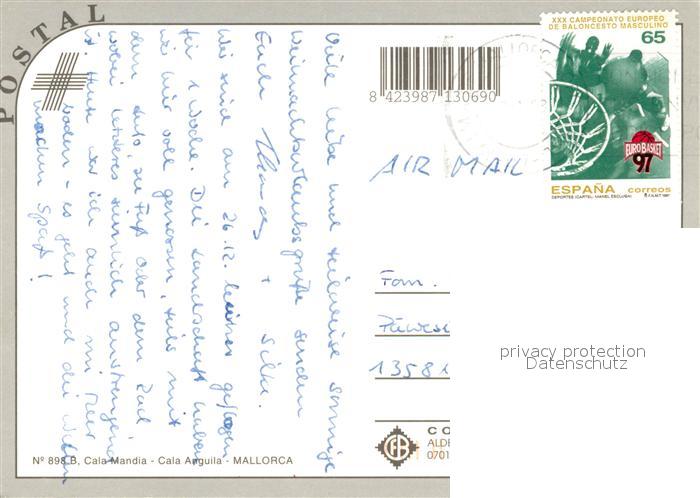 POSTAL
Viele liebe und teilweise sonnige
Weihnachtsurlaubsgrüße senden
Euch Thomas + Silke.
Wir sind am 26.12. geflogen
für 1 Woche. Die Landschaft haben
wir voll genossen, teils mit
dem Auto, zu Fuß oder dem Rad
wobei letzteres ziemlich anstrengend
ist. Heute war ich auch im Meer
baden - es geht und die Wellen
machen Spaß!
8 423987 130690
XXX CAMPEONATO EUROPEO
DE BALONCESTO MASCULINO
65
EUROBASKET
97
ESPAÑA correos
DEPORTES (CARTEL: MANEL ESCLUSA) F.N.M.T 1997
AIR MAIL
Fam.
13581
privacy protection
Datenschutz
CO
ALDE
0701
Nº 898 B, Cala Mandia - Cala Anguila - MALLORCA